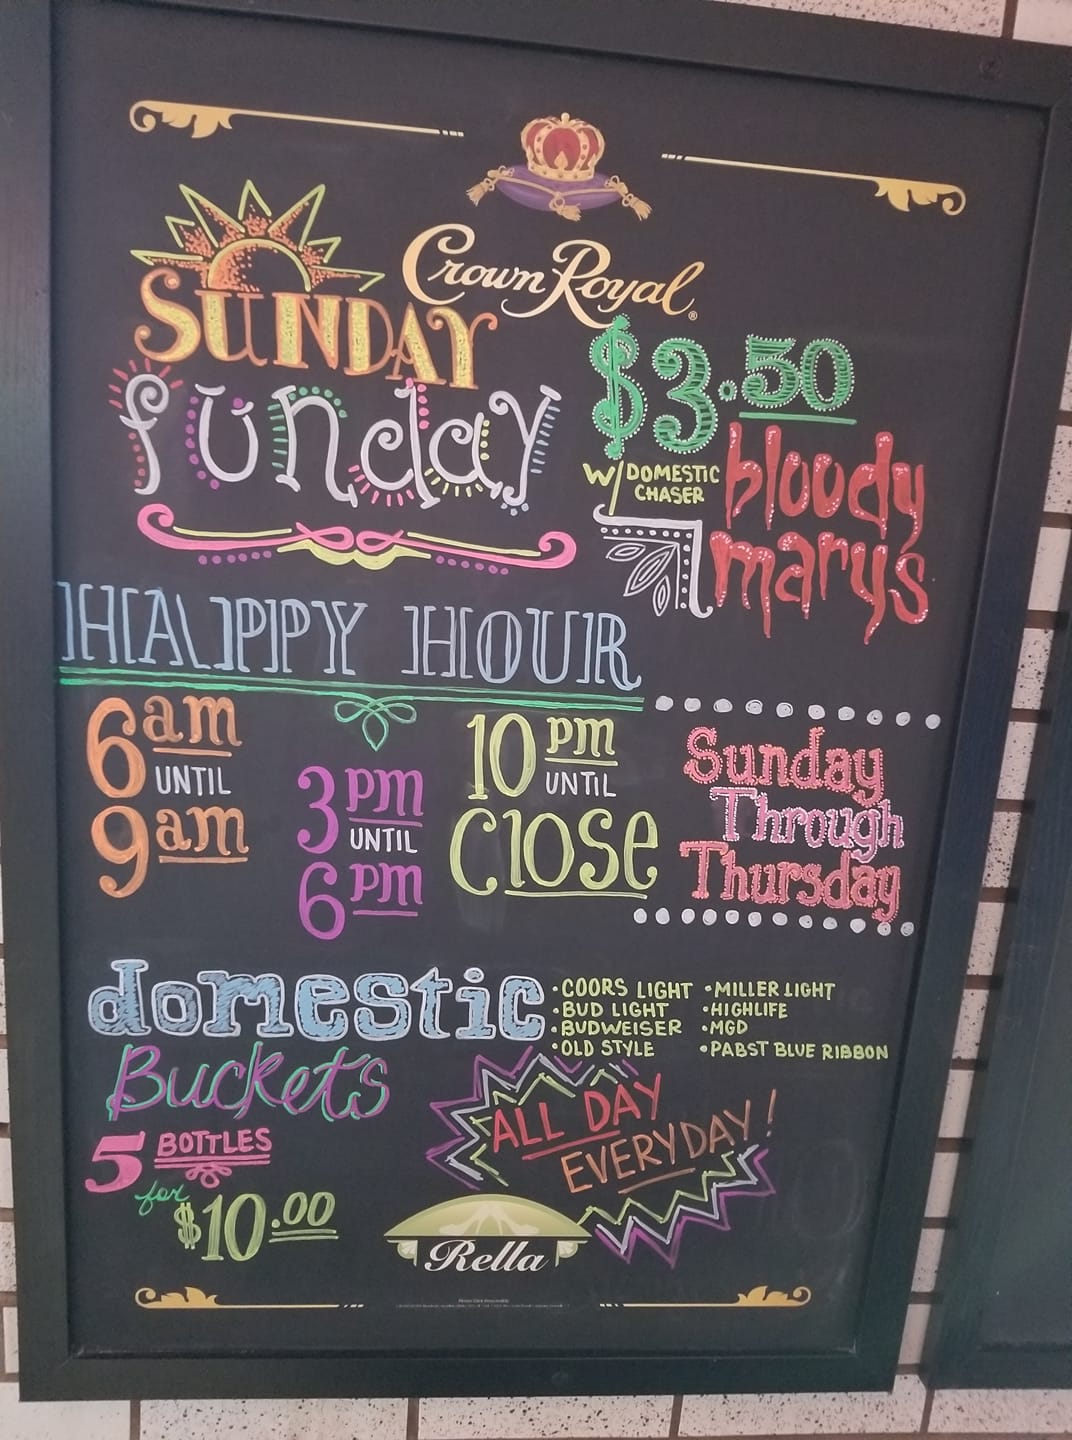 Crown Royal®
SUNDAY
funday
$3.50
W/ DOMESTIC
CHASER
bloody
mary's
HAPPY HOUR
6am
UNTIL
9am
3pm
UNTIL
6pm
10pm
UNTIL
Close
Sunday
Through
Thursday
domestic
Buckets
5 BOTTLES
for
$10.00
•COORS LIGHT
•BUD LIGHT
•BUDWEISER
•OLD STYLE
•MILLER LIGHT
•HIGHLIFE
•MGD
•PABST BLUE RIBBON
ALL DAY
EVERYDAY!
Rella